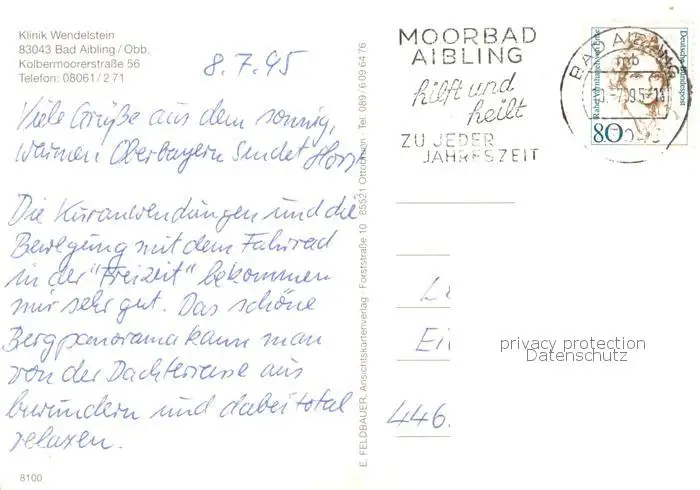 Klinik Wendelstein
83043 Bad Aibling/Obb.
Kolbermoorerstraße 56
Telefon: 08061/2 71
8.7.95
Viele Grüße aus dem sonnig,
warmen Oberbayern Sendet Horst
Die Kuranwendungen und die
Bewegung mit dem Fahrrad
in der "Freizeit" bekommen
mir sehr gut. Das schöne
Bergpanorama kann man
von der Dachterrasse aus
bewundern und dabei total
relaxen.
8100
E. FELDBAUER, Ansichtskartenverlag Forststraße 10 85521 Ottobrunn Tel. 089/6 09 64 76
MOORBAD
AIBLING
hilft und
heilt
ZU JEDER
JAHRESZEIT
BAD AIBLING
mb
Rahel Varnhagen von Ense
Deutsche Bundespost
80
446.
privacy protection
Datenschutz